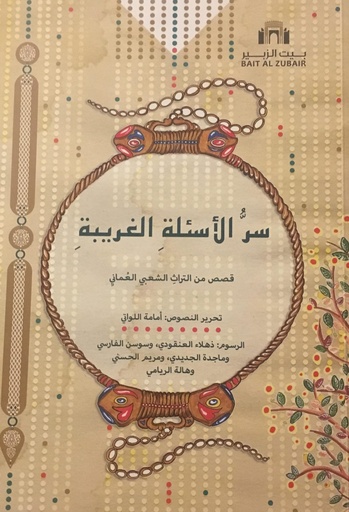 بيت الزبير
BAIT AL ZUBAIR
سرُّ الأسئلةِ الغريبةِ
قصص من التراث الشعبي العُماني
تحرير النصوص: أمامة اللواتي
الرسوم: ذهلاء العنقودي، وسوسن الفارسي
وماجدة الجديدي، ومريم الحسني
وهالة الريامي